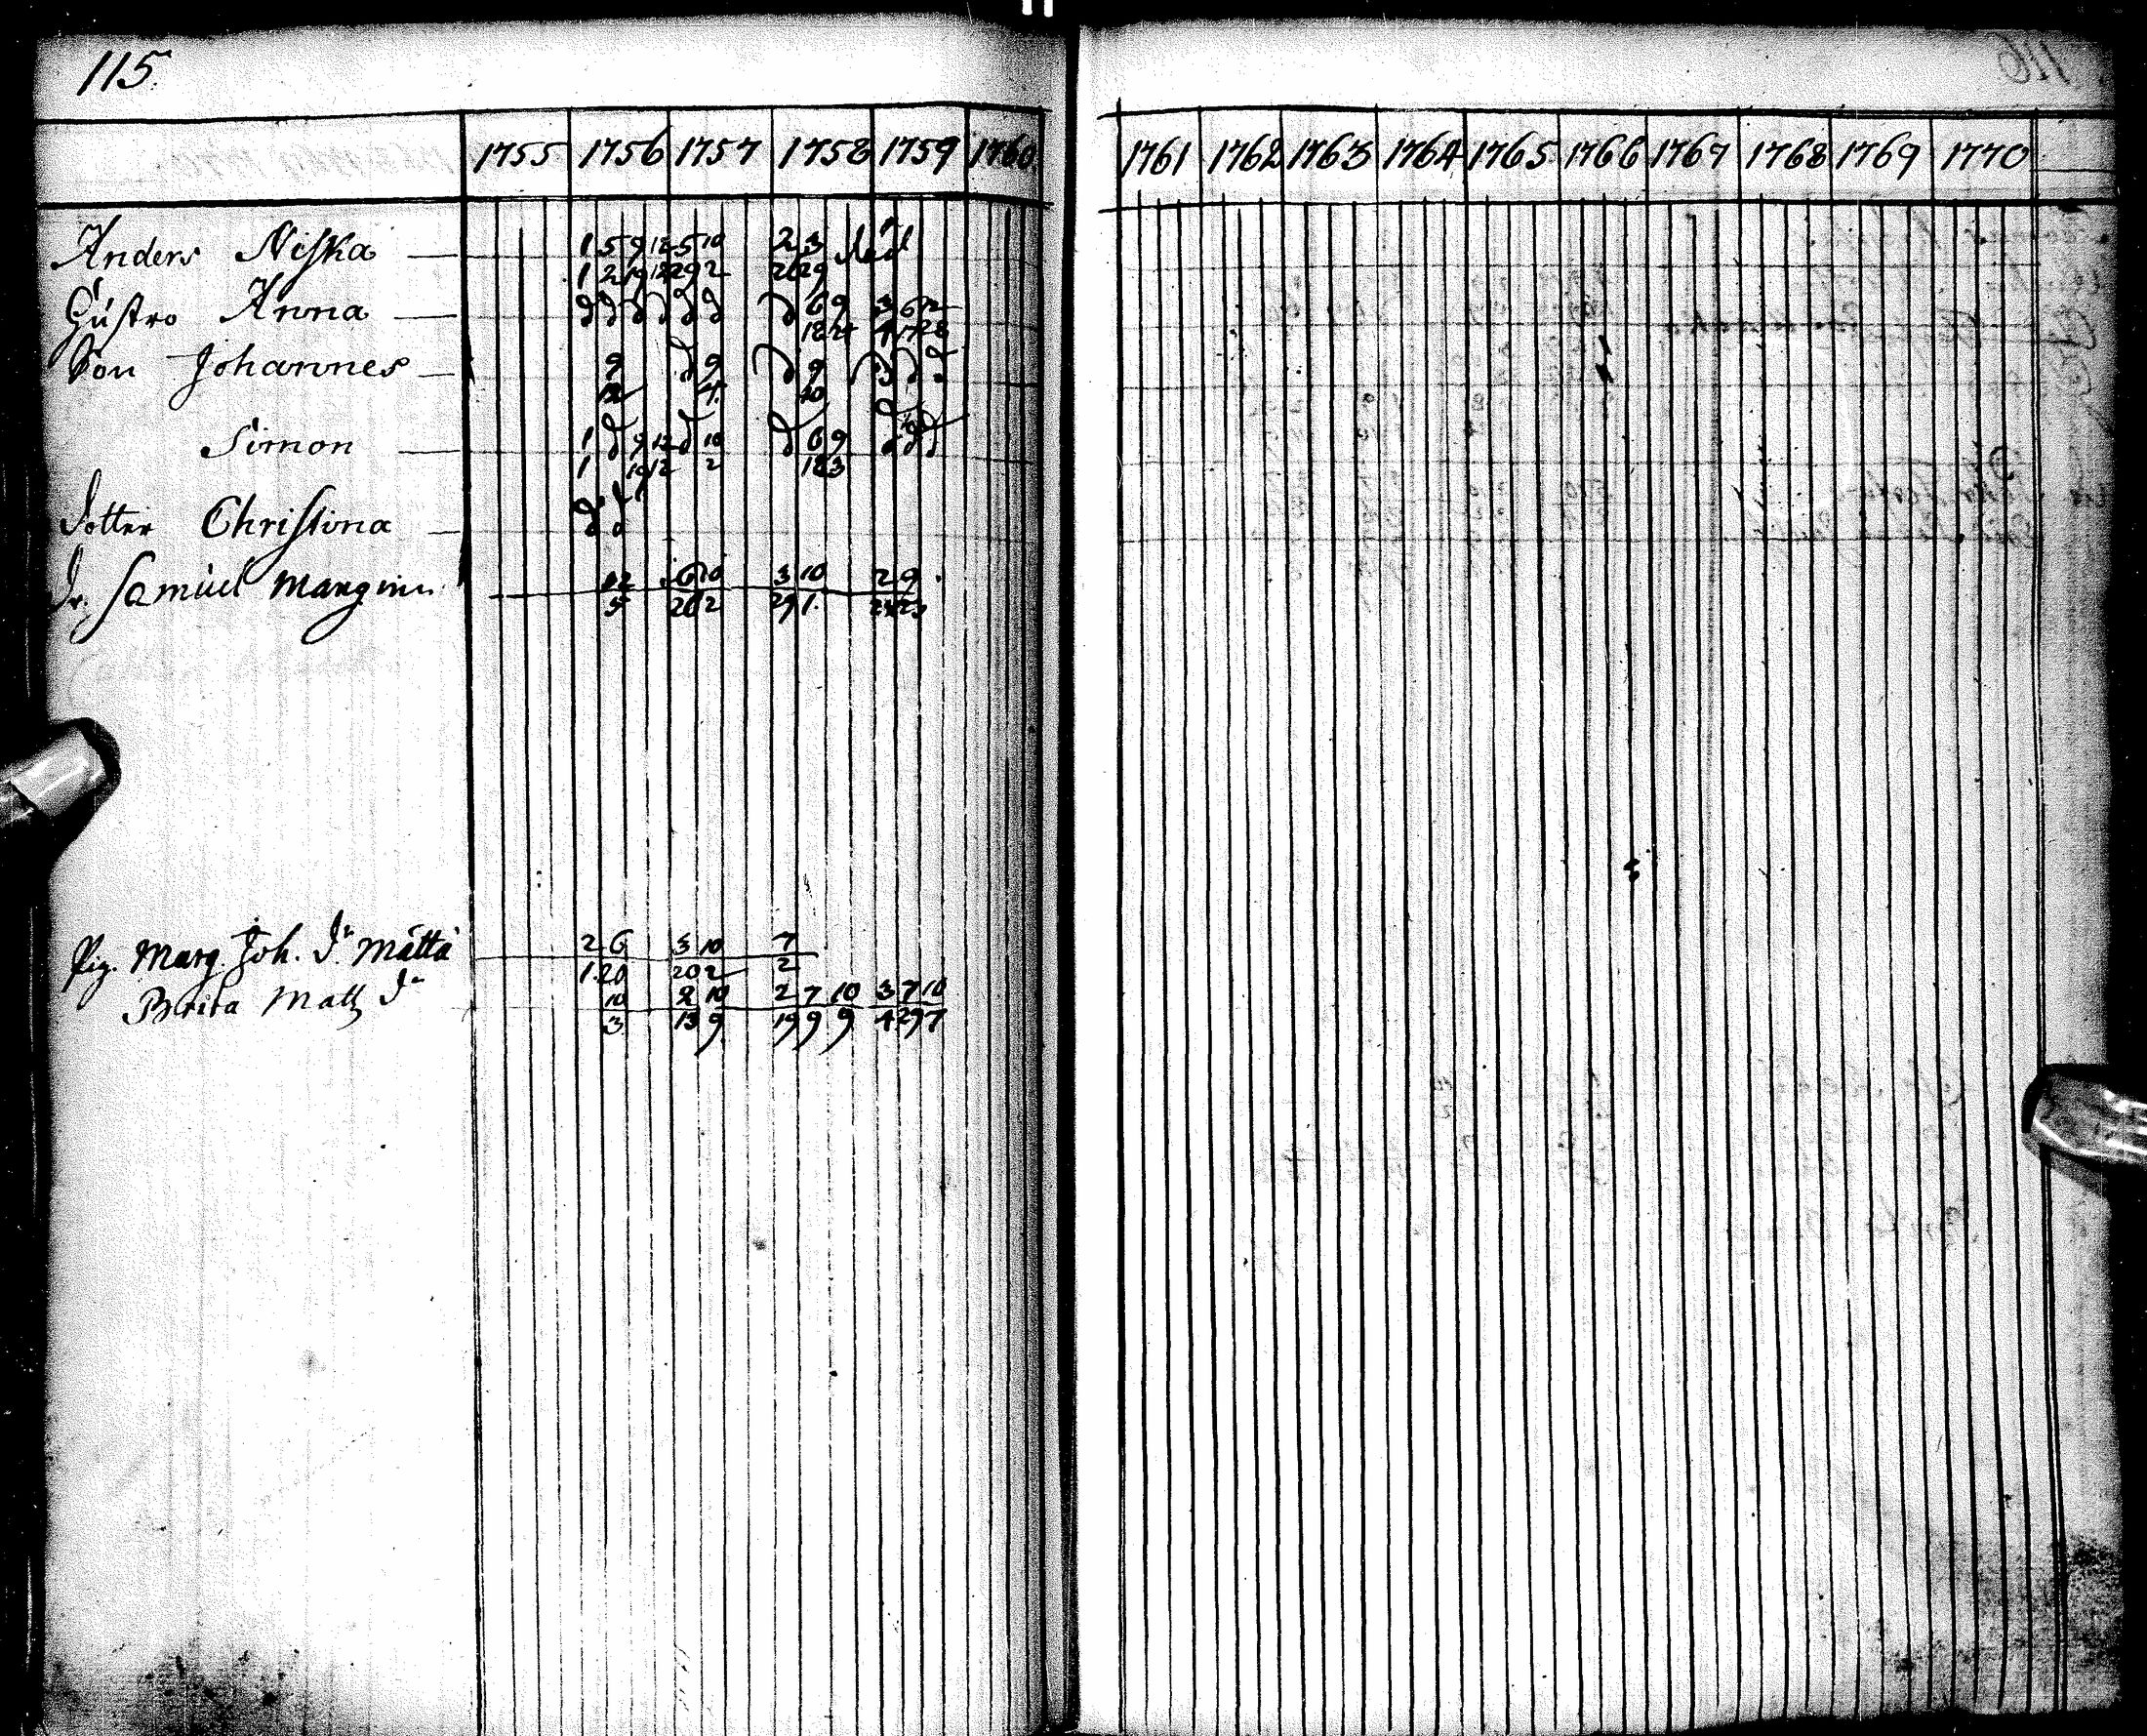 115.
1755 1756 1757 1758 1759 1760. 1761 1762 1763 1764 1765 1766 1767 1768 1769 1770
Anders Niska 1 5 9 12 5 10 2 3 död
1 2 19 12 29 2 26 29
Hustro Anna 6 9 3 6 12
18 24 4 17 28
Son Johannes 9 9 9
12 4. 10
Simon 1 9 12 10 6 9
1 19 12 2 18 3
Dotter Christina
Dr. Samuel 12 6 10 3 10 2 9
5 20 2 29 1.
Pig. Marg. Joh. Dr. Mättä 2 6 3 10 7
1. 20 20 2 2
Brita Matts Dr 10 2 10 2 7 10 3 7 10
3 13 9 19 9 9 4 29 7